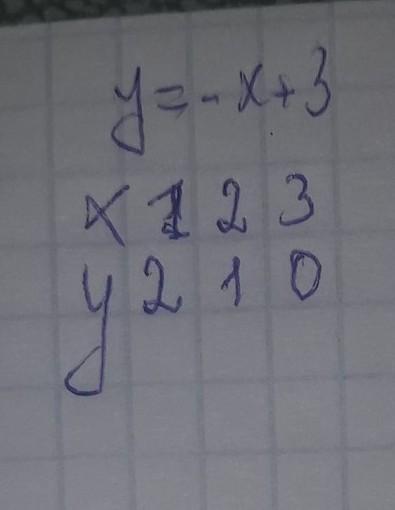 y=-x+3
x 1 2 3
y 2 1 0